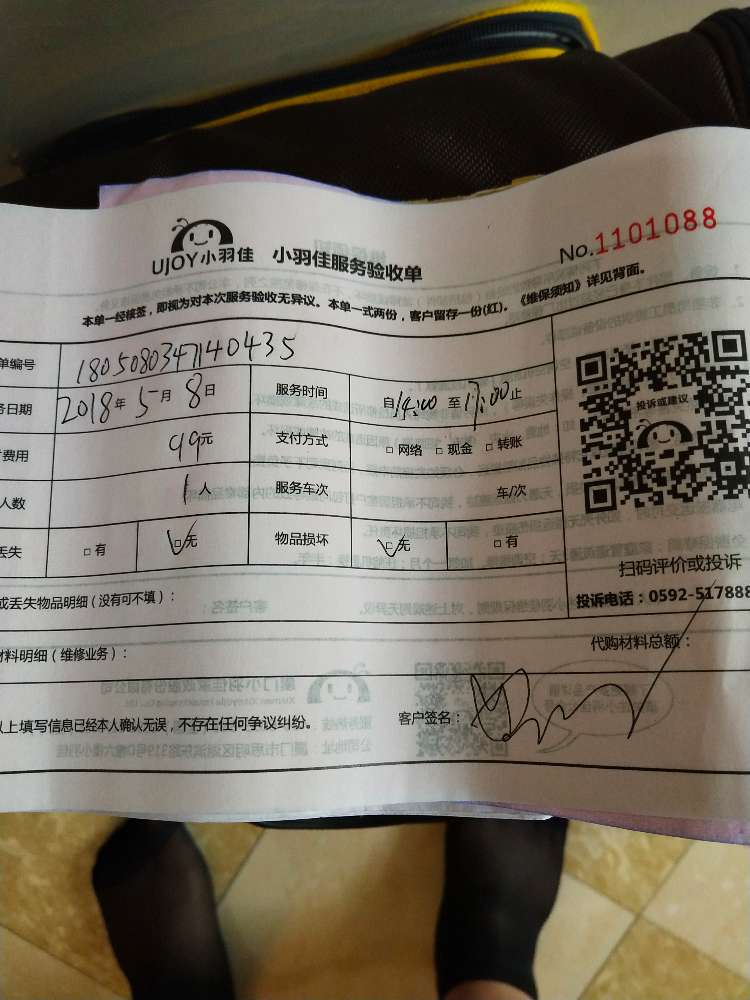 UJOY小羽佳 小羽佳服务验收单 No.1101088
本单一经核签，即视为对本次服务验收无异议。本单一式两份，客户留存一份(红)。《维保须知》详见背面。
单编号 1805080347140435
务日期 2018年5月8日 服务时间 自14:00至17:00止
费用 99元 支付方式 □网络 □现金 □转账
人数 1人 服务车次 车/次
丢失 □有 □无 物品损坏 □无 □有
投诉或建议
扫码评价或投诉
投诉电话：0592-517888
或丢失物品明细（没有可不填）：
材料明细（维修业务）： 代购材料总额：
以上填写信息已经本人确认无误，不存在任何争议纠纷。 客户签名：